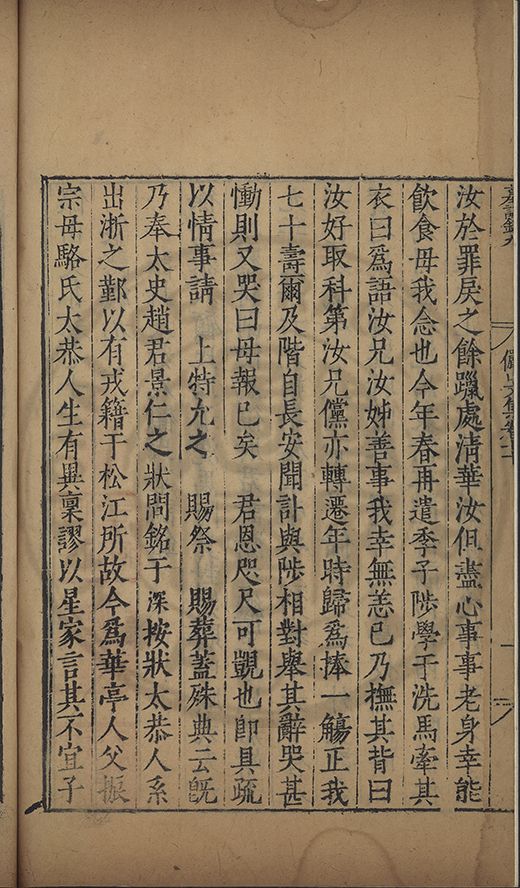 汝於罪戾之餘躐處淸華汝但盡心事事老身幸能
飲食毋我念也今年春再遣季子陟學于洗馬牽其
衣曰爲語汝兄汝姊善事我幸無恙已乃撫其背曰
汝好取科第汝兄儻亦轉遷年時歸爲捧一觴正我
七十壽爾及階自長安聞訃與陟相對舉其辭哭甚
慟則又哭曰母報已矣 君恩咫尺可覬也卽具疏
以情事請 上特允之 賜祭 賜葬蓋殊典云旣
乃奉太史趙君景仁之狀問銘于深按狀太恭人系
出浙之鄞以有戎籍于松江所故今爲華亭人父振
宗母駱氏太恭人生有異稟謬以星家言其不宜子